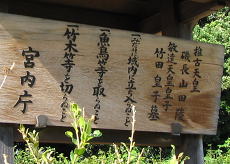 推古天皇
磯長山田陵
敏達天皇皇子
竹田皇子墓
一、みだりに域内に立ち入らぬこと
一、魚鳥等を取らぬこと
一、竹木等を切らぬこと
宮内庁